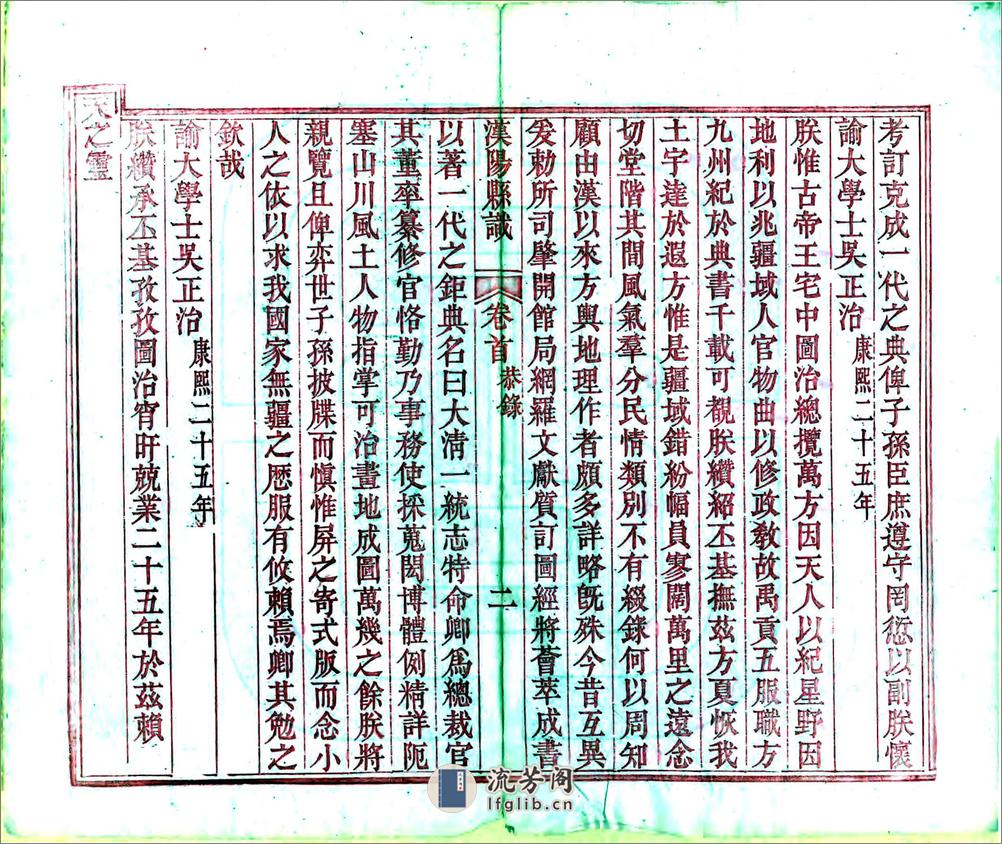 考訂克成一代之典俾子孫臣庶遵守罔愆以副朕懷
諭大學士吳正治 康熙二十五年
朕惟古帝王宅中圖治總攬萬方因天人以紀星野因
地利以兆疆域人官物曲以修政敎故禹貢五服職方
九州紀於典書千載可覩朕纘紹丕基撫茲方夏恢我
土宇達於遐方惟是疆域錯紛幅員寥闊萬里之遠念
切堂階其間風氣羣分民情類別不有綴錄何以周知
顧由漢以來方輿地理作者頗多詳略旣殊今昔互異
爰勅所司肇開館局網羅文獻質訂圖經將薈萃成書
漢陽縣識 卷首 恭錄 二
以著一代之鉅典名曰大清一統志特命卿爲總裁官
其董率纂修官恪勤乃事務使採蒐閎博體例精詳阨
塞山川風土人物指掌可治畫地成圖萬幾之餘朕將
親覽且俾奕世子孫披牒而愼惟屏之寄式版而念小
人之依以求我國家無疆之厯服有攸賴焉卿其勉之
欽哉
諭大學士吳正治 康熙二十五年
朕纘承丕基孜孜圖治宵旰兢業二十五年於茲賴
天之靈
流芳阁
lfglib.cn